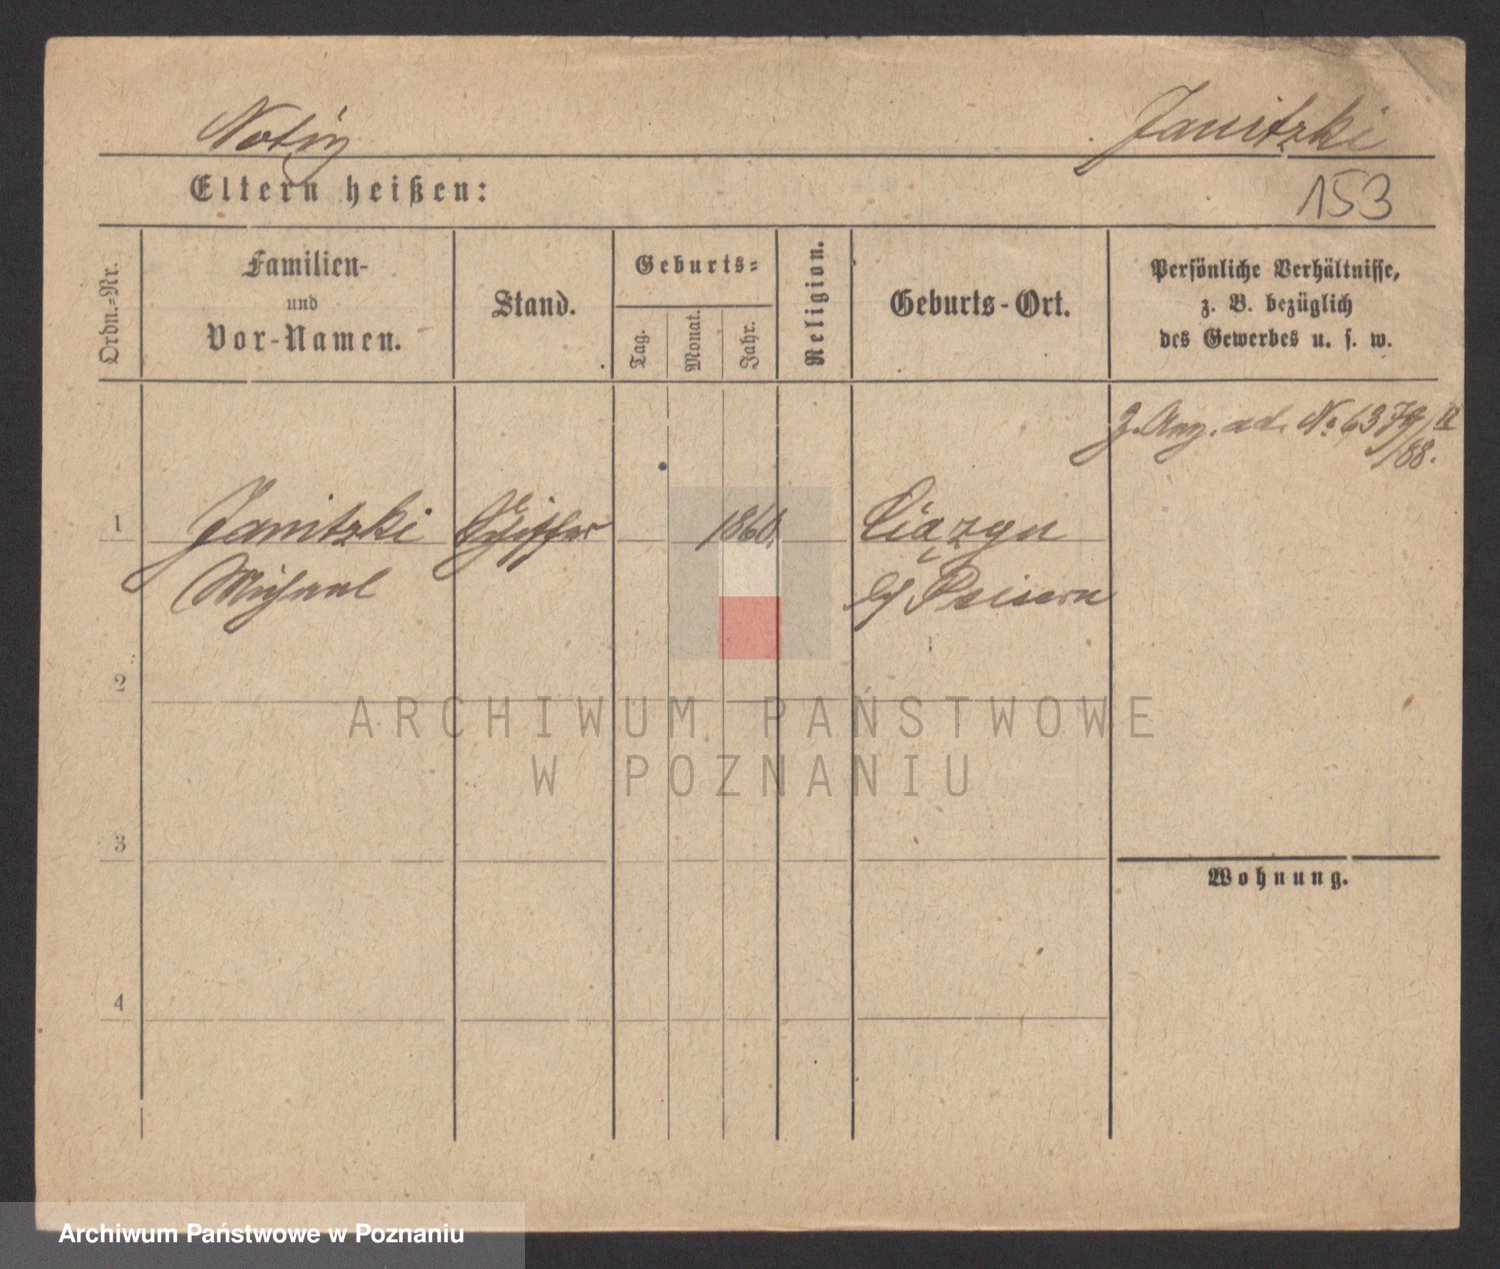 Notiz
Janitzki
Eltern heißen:
153
Ordn.=Nr.
Familien-
und
Vor-Namen.
Stand.
Geburts=
Tag.
Monat.
Jahr.
Religion.
Geburts-Ort.
Persönliche Verhältnisse,
z. B. bezüglich
des Gewerbes u. s. w.
Z. Anz. ad. No 6379/88. II
1
Janitzki
Schiffer
1860.
Ciązyn
Michael
bei Peisern
2
ARCHIWUM PAŃSTWOWE
W POZNANIU
3
Wohnung.
4
Archiwum Państwowe w Poznaniu